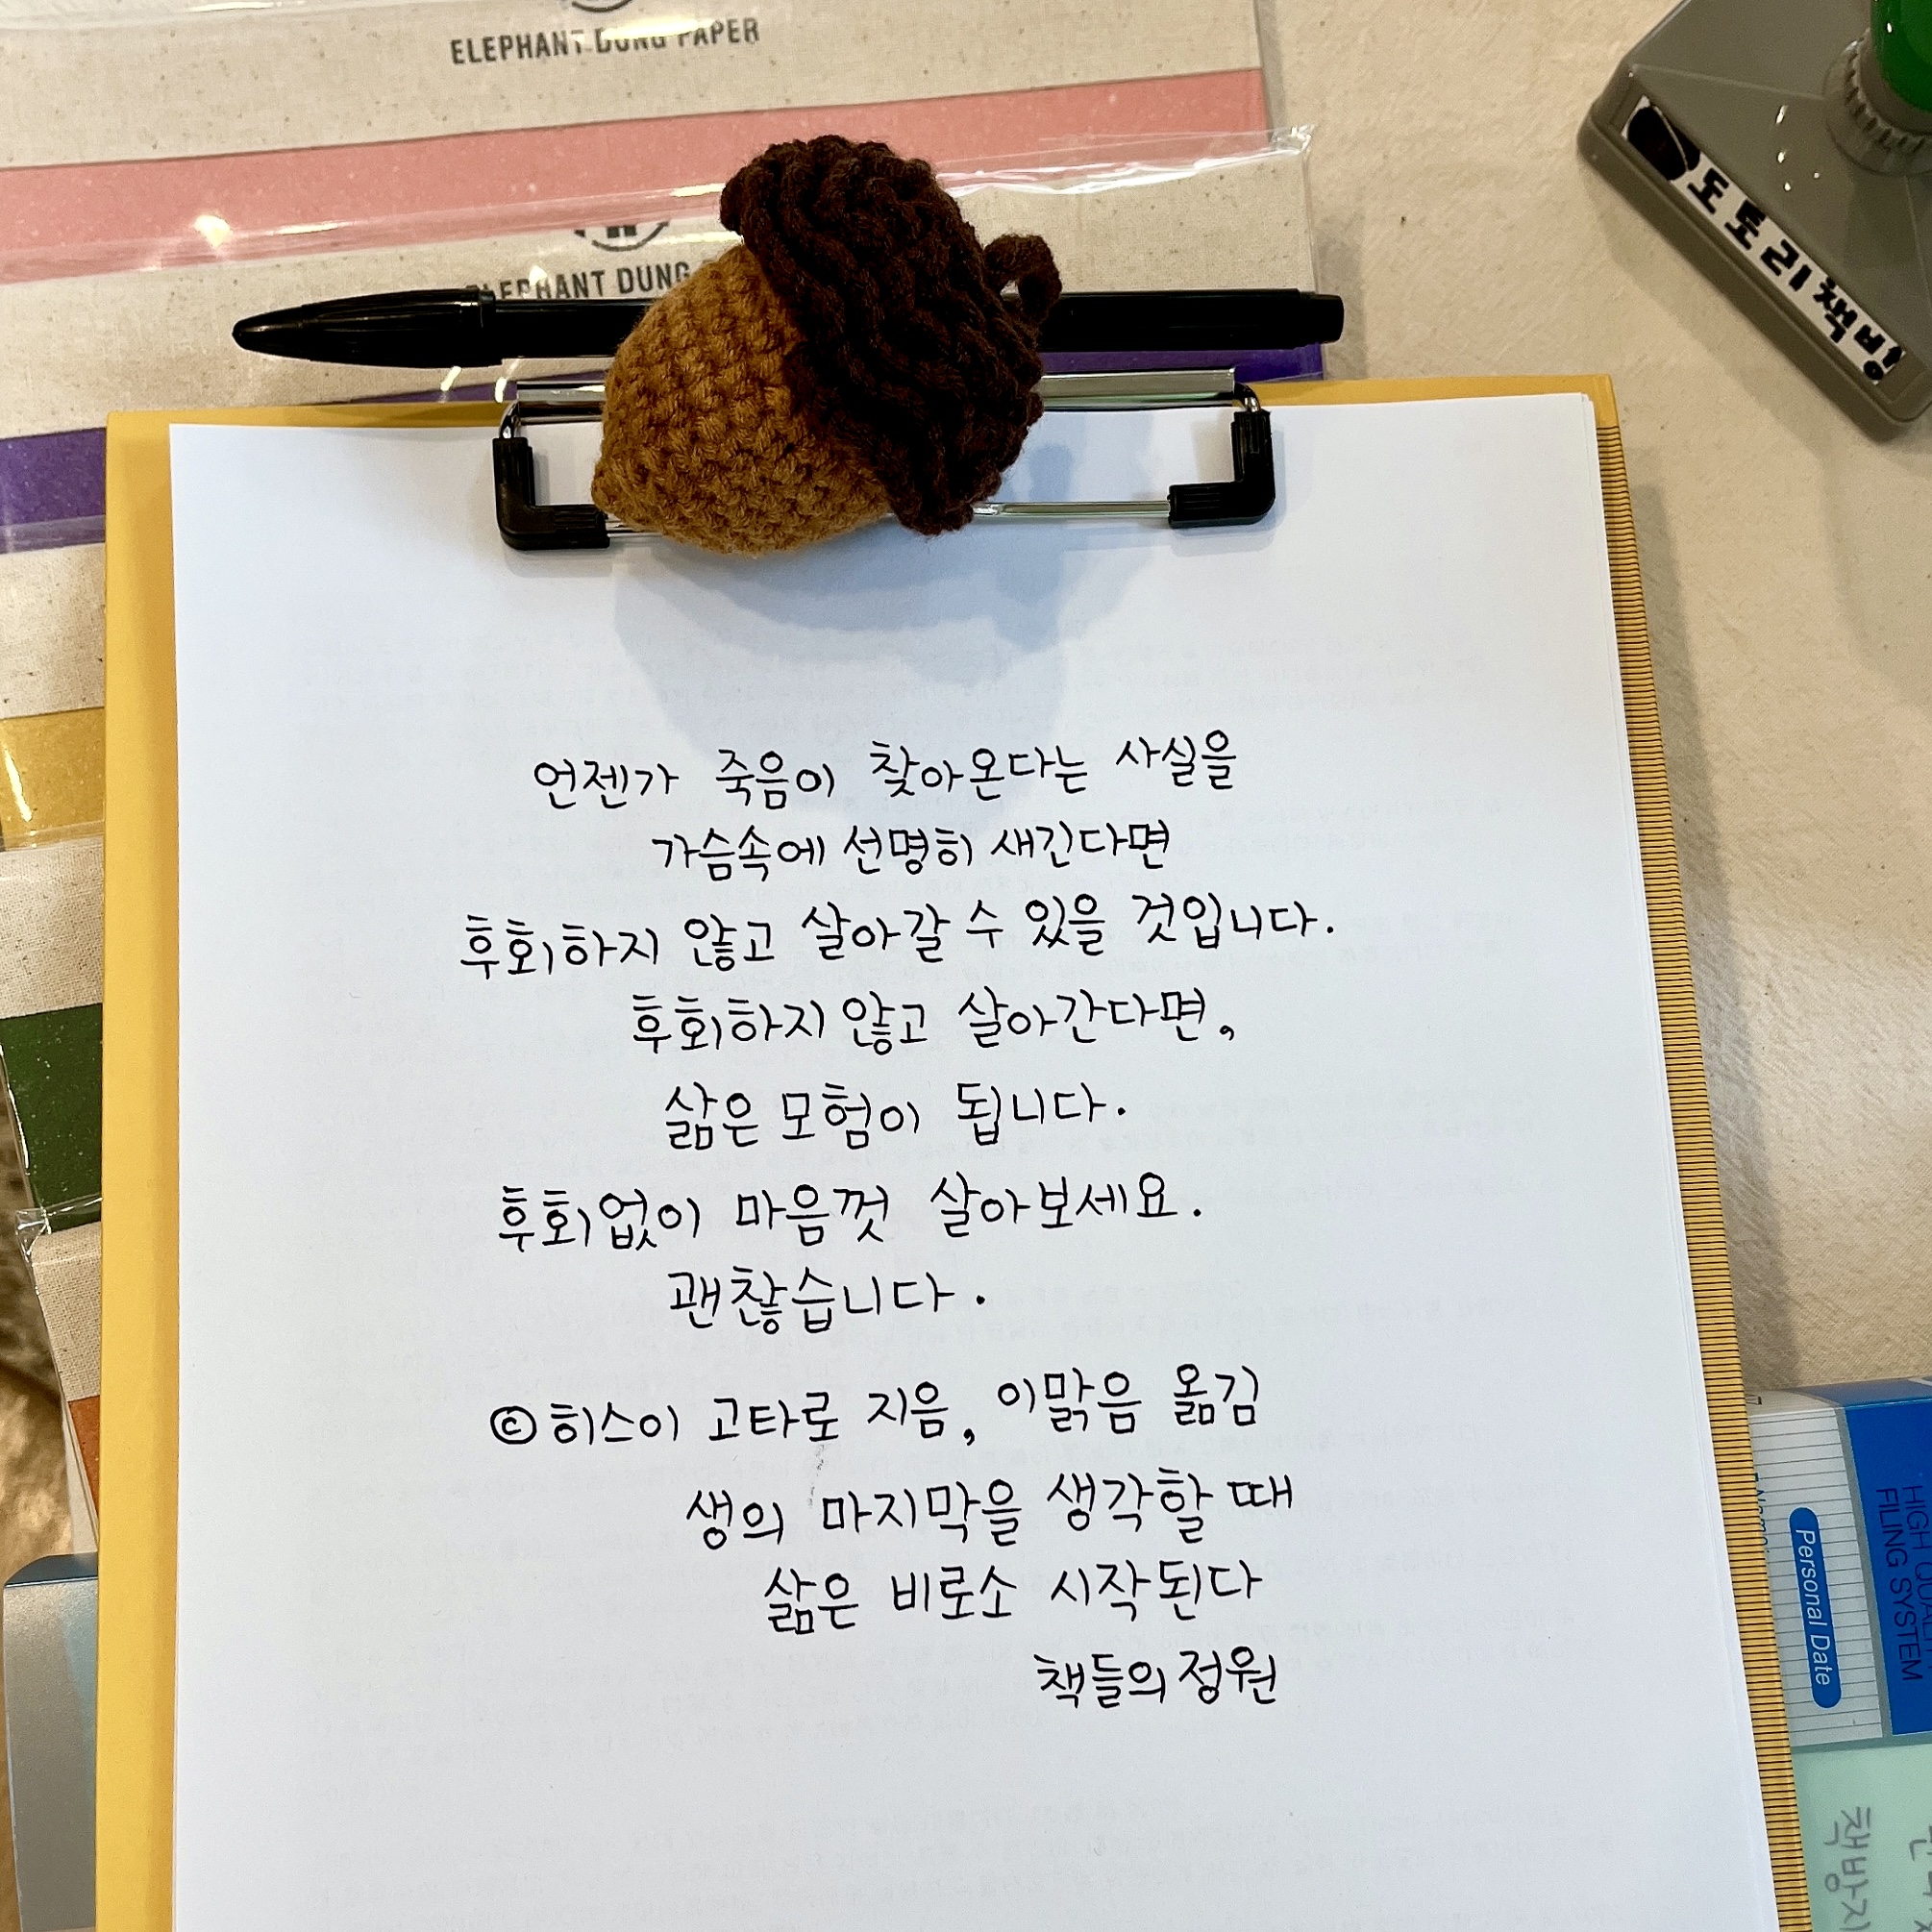 ELEPHANT DUNG PAPER
ELEPHANT DUNG
도토리책방
언젠가 죽음이 찾아온다는 사실을
가슴속에 선명히 새긴다면
후회하지 않고 살아갈 수 있을 것입니다.
후회하지 않고 살아간다면,
삶은 모험이 됩니다.
후회없이 마음껏 살아보세요.
괜찮습니다.
© 히스이 고타로 지음, 이맑음 옮김
생의 마지막을 생각할 때
삶은 비로소 시작된다
책들의정원
HIGH QUALITY
FILING SYSTEM
Personal Date